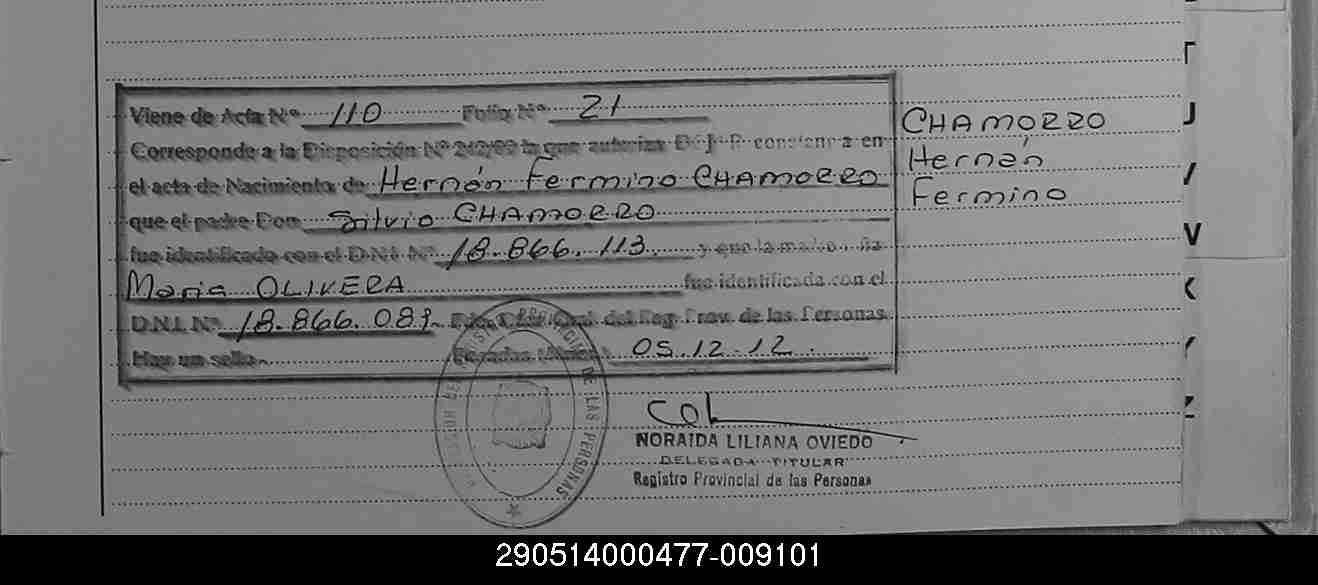 Viene de Acta Nº 110 Folio Nº 21
Corresponde a la Disposición Nº 242/09 la que autoriza en
el acta de Nacimiento de Hernán Fermino CHAMORRO
que el padre Don Silvio CHAMORRO
fue identificado con el D.N.I. Nº 18.866.113. y que la
Maria OLIVERA fue identificada con el
D.N.I. Nº 18.866.081. Gral. del Reg. Prov. de las Personas
Hay un sello. Posadas 05.12.12.
CHAMORRO
Hernán
Fermino
DE LAS PERSONAS
NORAIDA LILIANA OVIEDO
DELEGADA TITULAR
Registro Provincial de las Personas
T
U
V
W
X
Y
Z
290514000477-009101